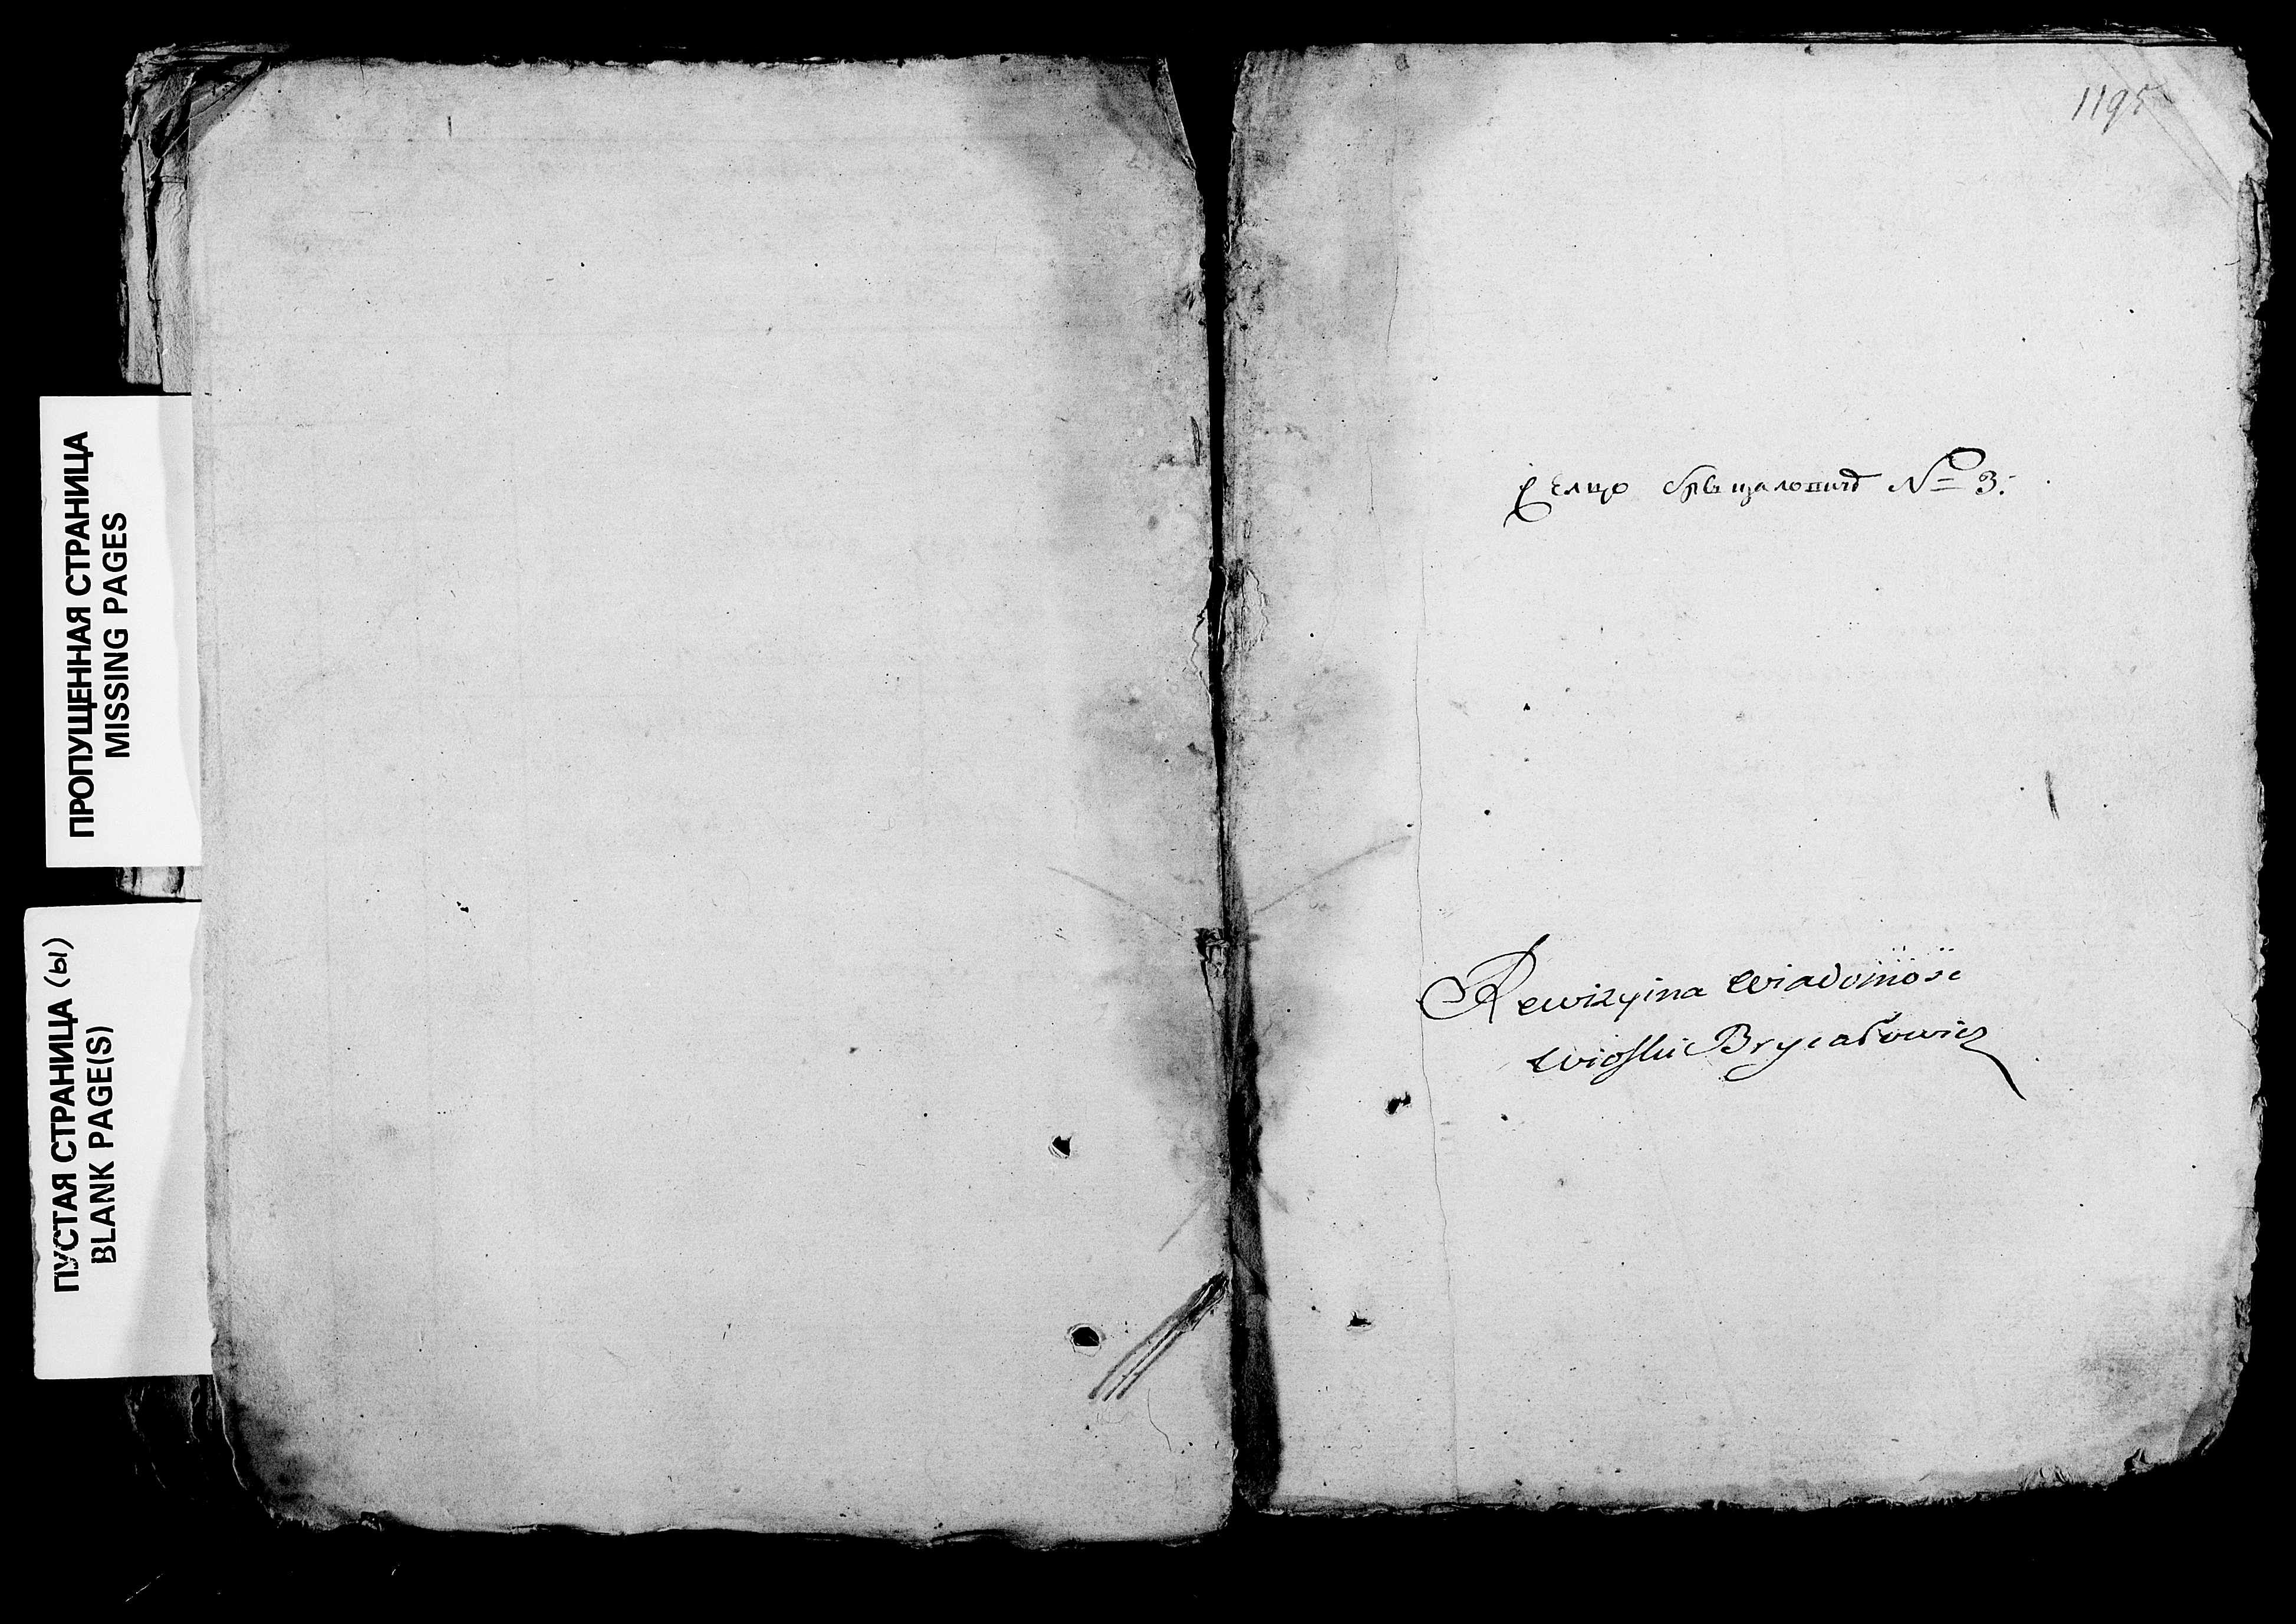 ПРОПУЩЕННАЯ СТРАНИЦА
MISSING PAGES
ПУСТАЯ СТРАНИЦА (Ы)
BLANK PAGE(S)
1195
Селцо брыцаловичъ № 3:
Rewizyina Wiadomość
Wioski Brycałowicz